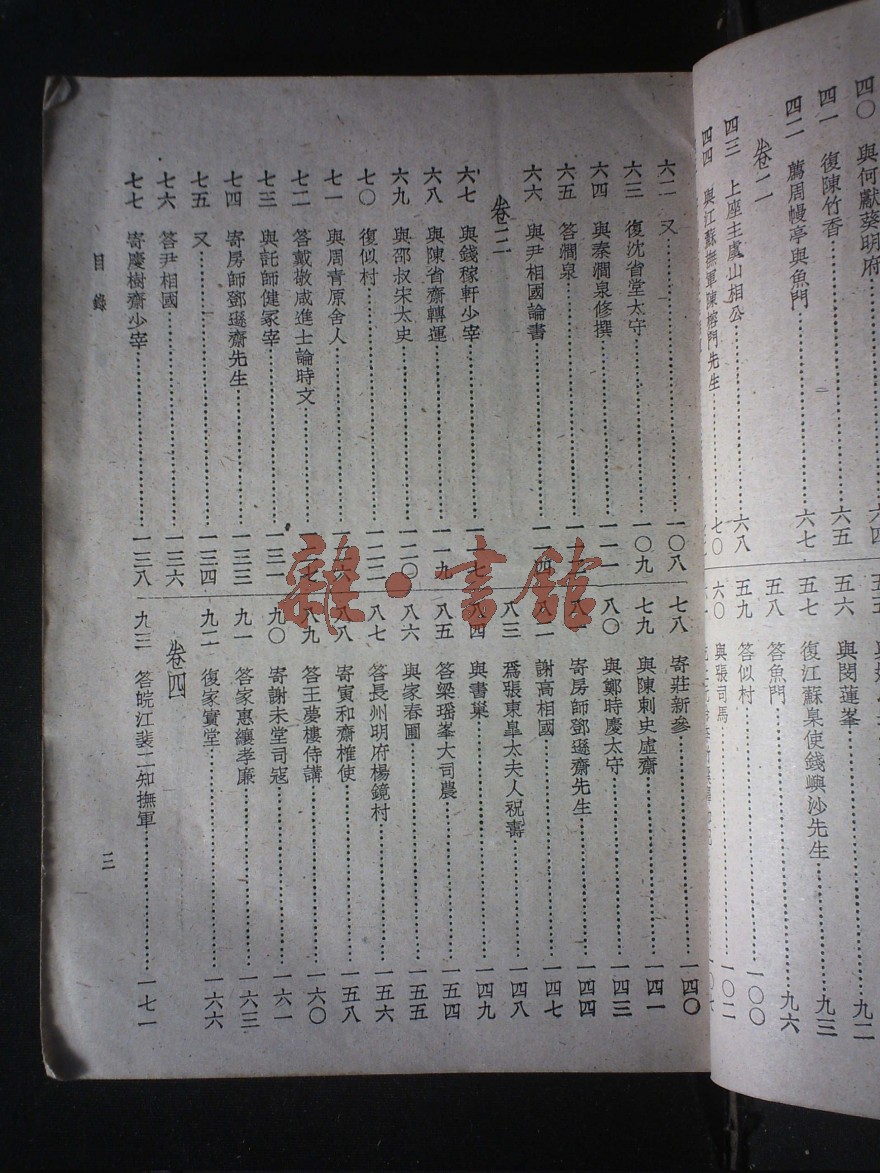 四〇 與何獻葵明府 六四
四一 復陳竹香 六五
四二 薦周幔亭與魚門 六七
卷二
四三 上座主虞山相公 六八
四四 與江蘇撫軍陳榕門先生 七〇
與閔蓮峯 九二
五七 復江蘇臬使錢嶼沙先生 九三
五八 答魚門 九六
五九 答似村 一〇〇
六〇 與張司馬 一〇二
六二 又 一〇八
六三 復沈省堂太守 一〇九
六四 與秦澗泉修撰 一一一
六五 答澗泉
六六 與尹相國論書 一一四
卷三
六七 與錢稼軒少宰 一一七
六八 與陳省齋轉運 一一九
六九 與邵叔宋太史 一二〇
七〇 復似村 一二二
七一 與周青原舍人 一二六
七二 答戴敬咸進士論時文
七三 與託師健冢宰 一三一
七四 寄房師鄧遜齋先生 一三三
七五 又 一三四
七六 答尹相國 一三六
七七 寄慶樹齋少宰 一三八
七八 寄莊新參 一四〇
七九 與陳刺史虛齋 一四一
八〇 與鄭時慶太守 一四三
八一 寄房師鄧遜齋先生 一四四
八二 謝高相國 一四七
八三 爲張東臯太夫人祝壽 一四八
八四 與書巢 一四九
八五 答梁瑶峯大司農 一五四
八六 與家春圃 一五五
八七 答長州明府楊鏡村 一五六
八八 寄寅和齋榷使 一五八
八九 答王夢樓侍講 一六〇
九〇 寄謝未堂司寇 一六一
九一 答家惠纕孝廉 一六三
九二 復家實堂 一六六
卷四
九三 答皖江裴二知撫軍 一七一
目錄
三
雜·書館